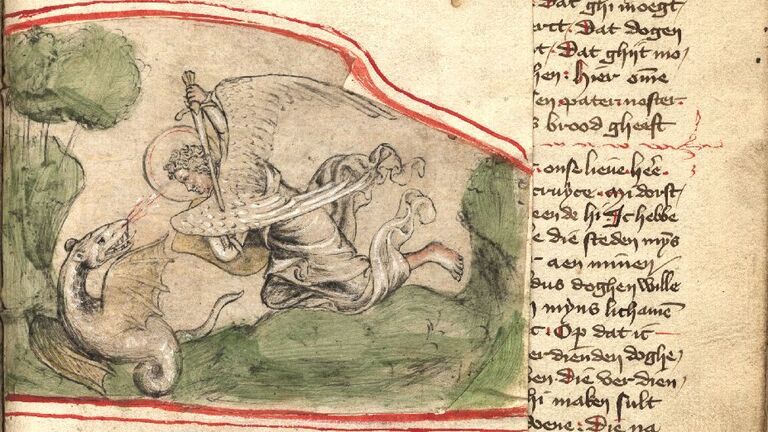 dat ghi moegt
ertt · Dat dogen
t · Dat ghijt mo
hen : hier ome
en pater · noster ·
s brood gheeft
onse lieue here
cruyce · Mi dorst
eende hi Ic hebbe
e die steden mijs
aen minen
dus doghen wille
mijns lichamen
t : Op dat ic
er dienden doghe
en · die verdien
hi maken sult
Die na